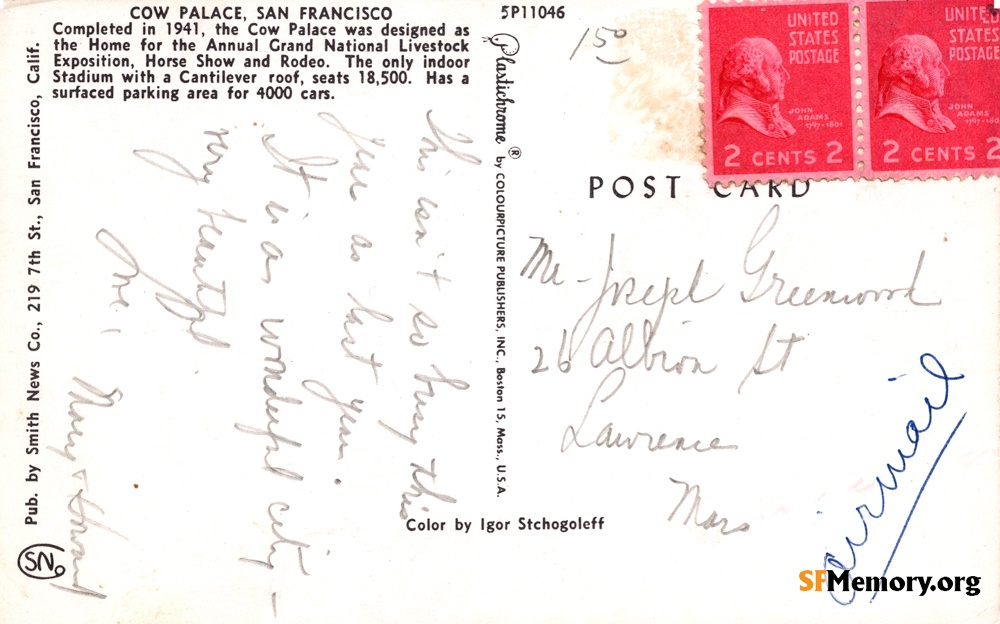 COW PALACE, SAN FRANCISCO
Completed in 1941, the Cow Palace was designed as
the Home for the Annual Grand National Livestock
Exposition, Horse Show and Rodeo. The only indoor
Stadium with a Cantilever roof, seats 18,500. Has a
surfaced parking area for 4000 cars.
Pub. by Smith News Co., 219 7th St., San Francisco, Calif.
SN
This isn't so busy this
year as last year.
It is a wonderful city –
very beautiful
Love,
Mary & Howard
Color by Igor Stchogoleff
5P11046
Plastichrome ® by COLOURPICTURE PUBLISHERS, INC., Boston 15, Mass., U.S.A.
15º
UNITED
STATES
POSTAGE
JOHN
ADAMS
1797-1801
2 CENTS 2
UNITED
STATES
POSTAGE
JOHN
ADAMS
2 CENTS 2
POST CARD
Mr – Joseph Greenwood
26 Albion St
Lawrence
Mass
airmail
SFMemory.org